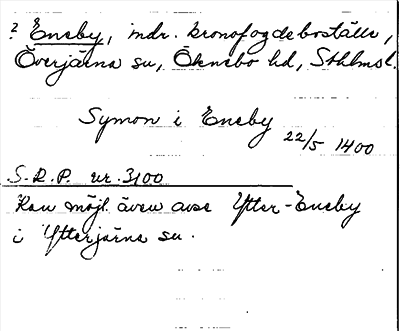 ? Eneby, indr. kronofogdeboställe,
Överjärna sn, Öknebo hd, Sthlmsl.
Symon i Eneby
22/5 1400
S.R.P. nr. 3100
Kan möjl. även avse Ytter-Eneby
i Ytterjärna sn.